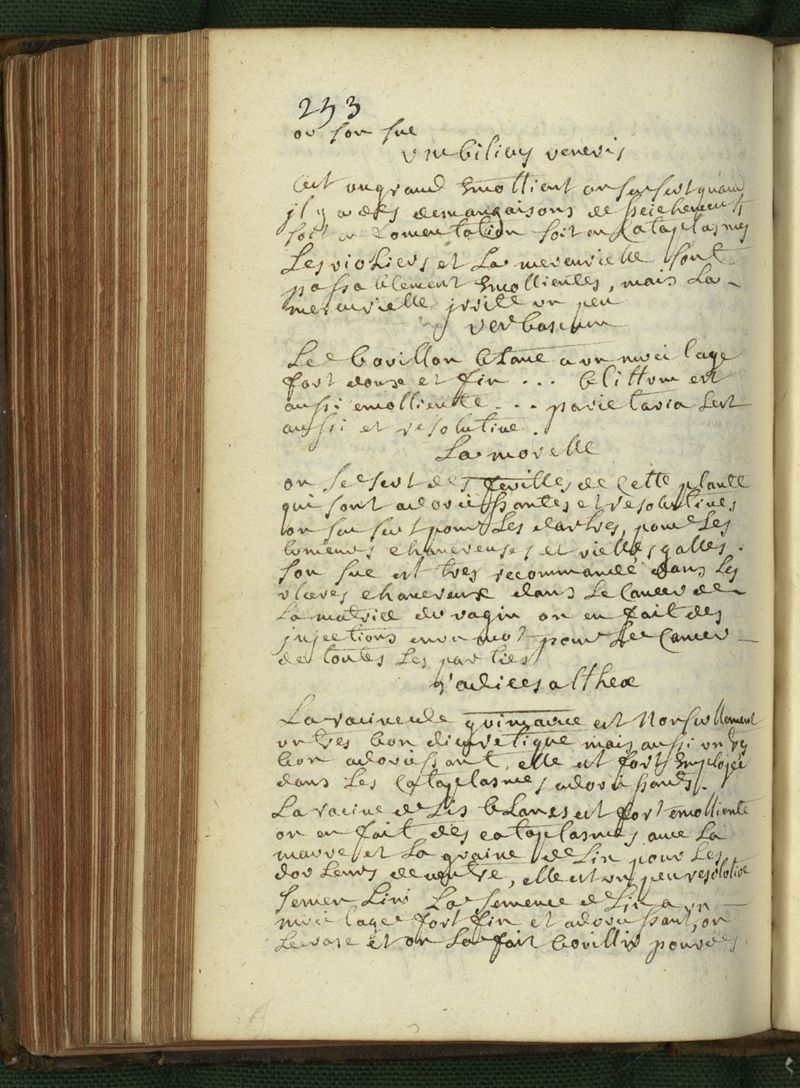 253
ou son suc
vmbilicus veneris
cest un grand Emollient on sen sert quand
jl y a des demangaisons de seichement
soit en fomentation soit en Cataplasmes
Les violiers et La mercurielle sont
passablement Emollientes, mais La
mercurielle jrrite un peu
verbascum
Le bouillon blanc a un muci lage
fort doux et fin ... blittum est
aussi emolliente ... parietaria Lest
aussi et resolutive.
La morelle
on se sert des feuilles de Cette plante
qui sont adoucissantes et resolutives
on sen sert pour Les dartres, pour Les
tumeurs chancreuses et vielles galles.
son suc est tres recommandé dans Les
vlceres chancreux dans Le Cancer de
La matrice du vagin on en fait des
jnjections en un mot pour Le Cancer
de toutes Les parties
radices altheæ
La racine de guimauve est Non seullement
un tres bon diuretique mais aussi un
bon adoucissant, elle est fort Employée
dans Les Cataplasmes adoucissants.
La racine de Lis blancs est fort emolliente
on en fait des cataplasmes avec La
mauve et La graine de Lin pour Les
douleurs de ventre, elle est un peu resolutive
semen Lini La semence de Lin a un
muci lage fort fin et adoucissant, on
Lecrase et on La fait bouillir pour des